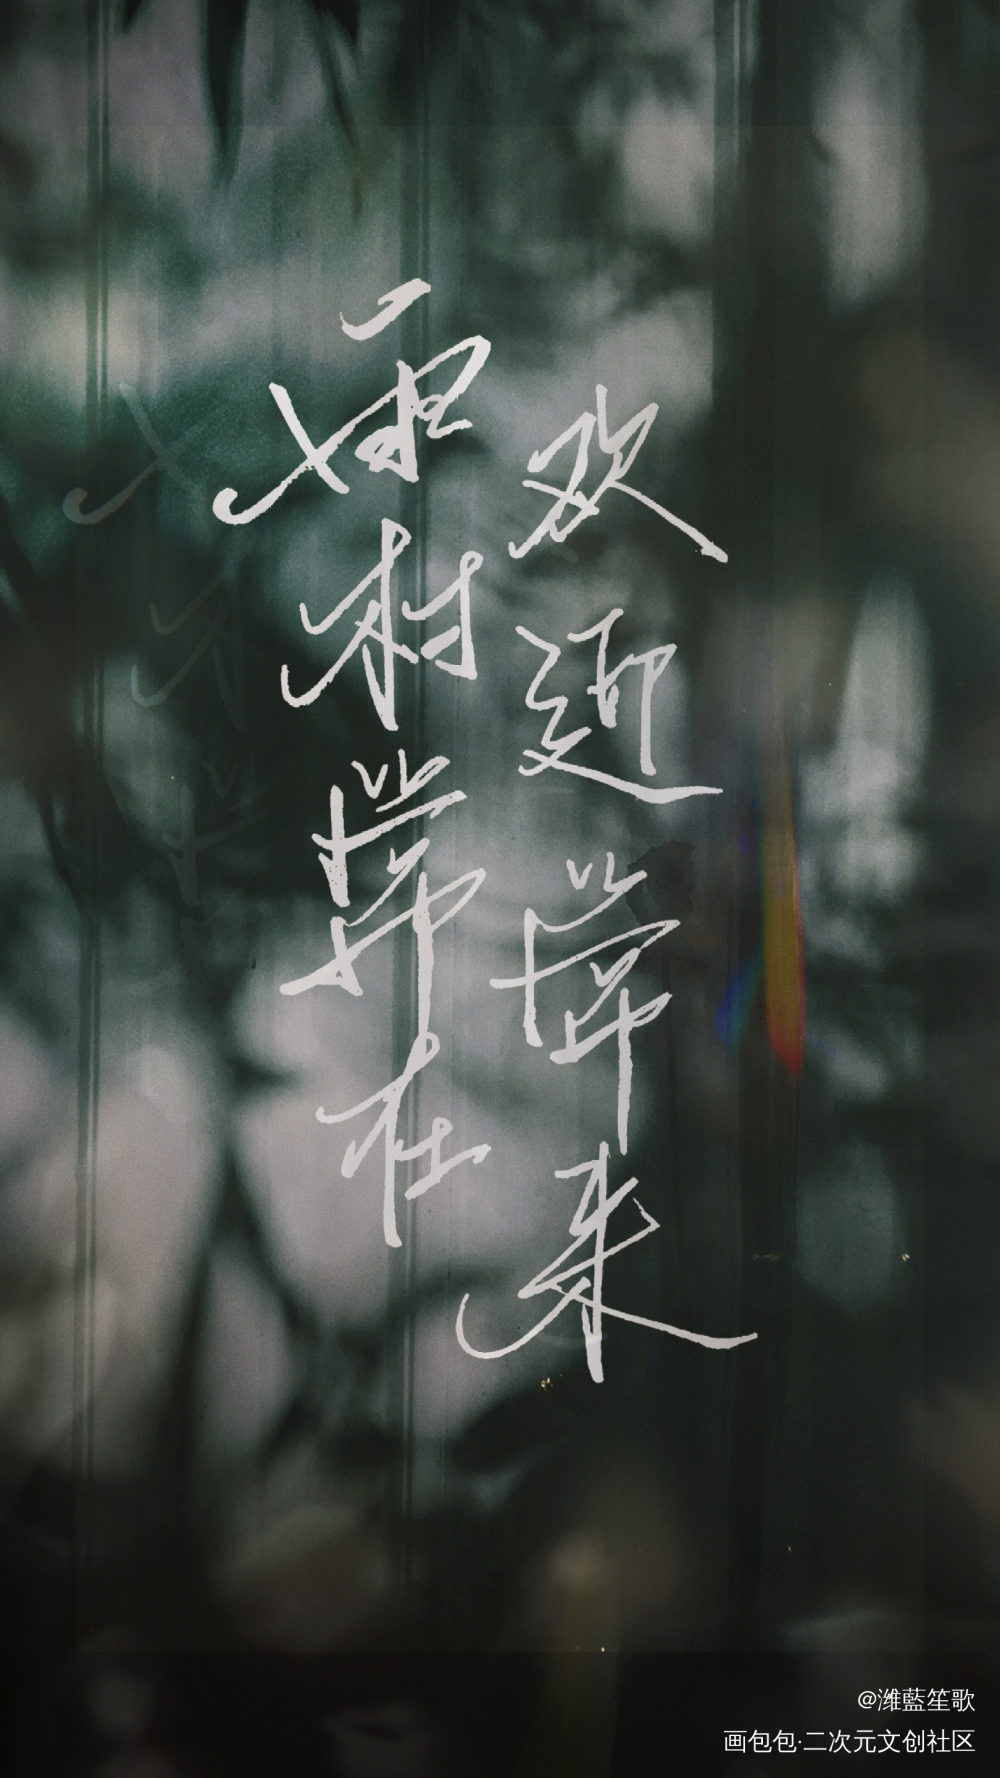 欢迎常来
雲村常在
@潍藍笙歌
画包包·二次元文创社区